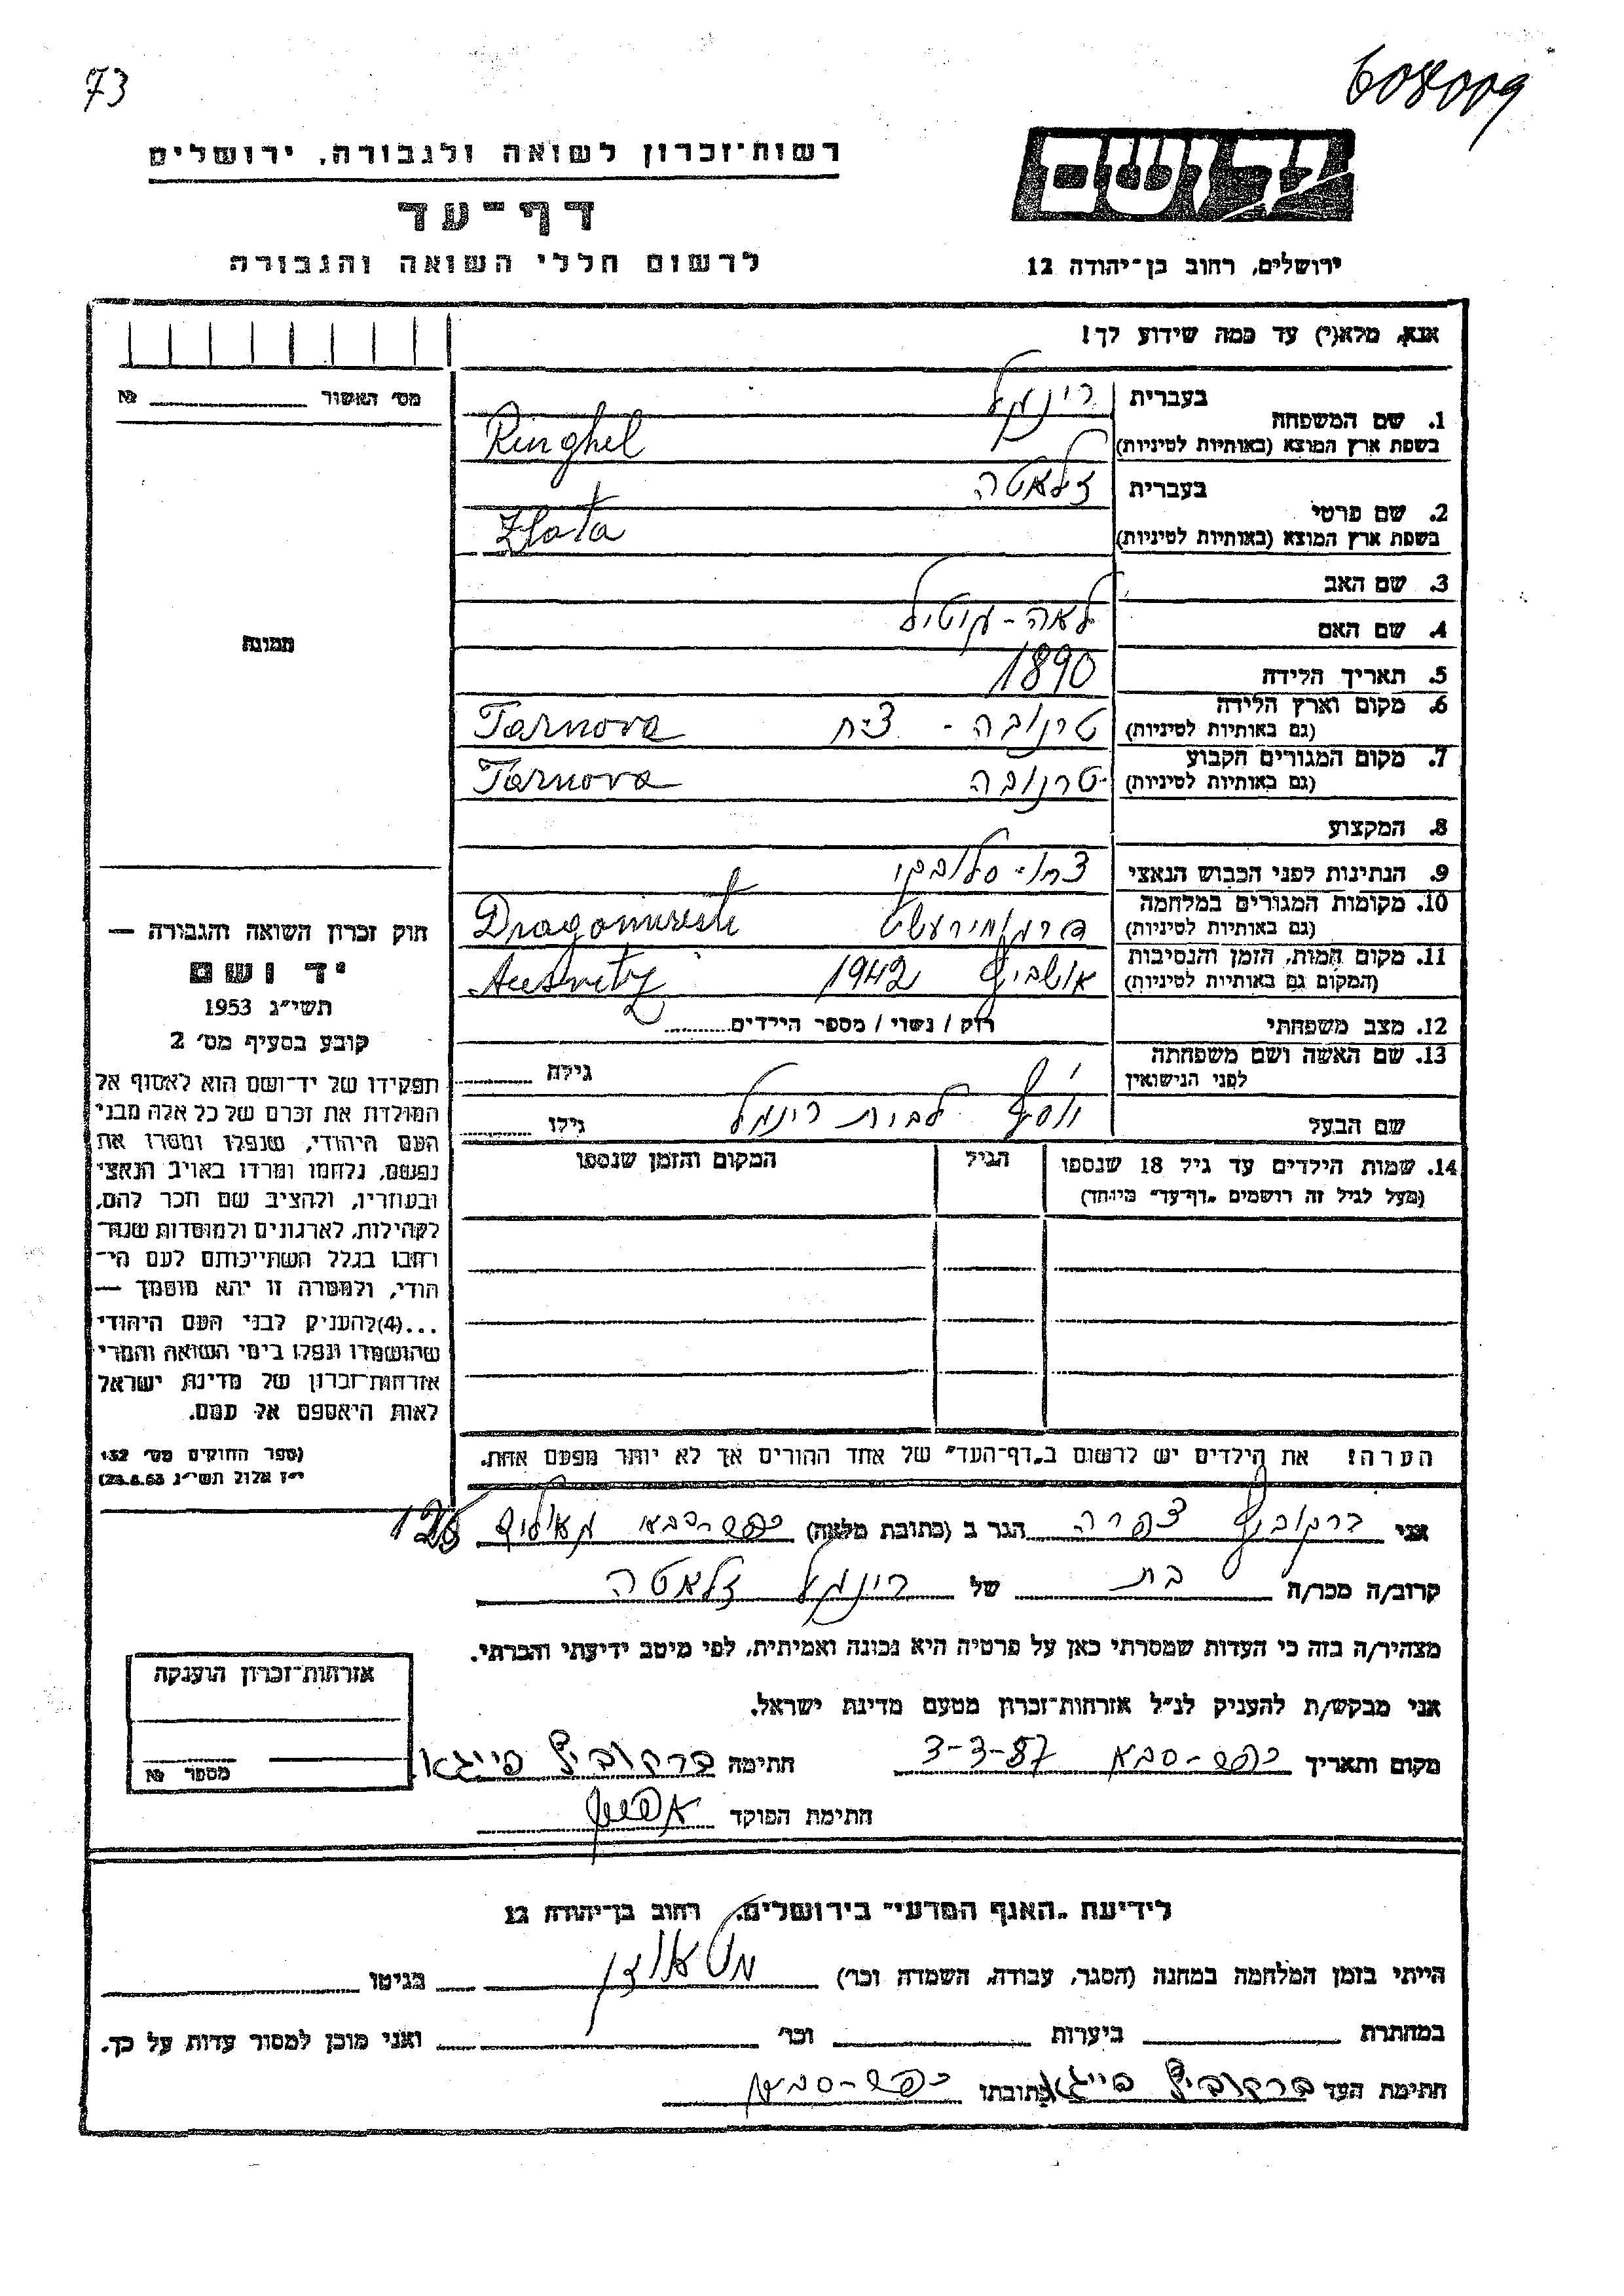 73
608009
רשות־זכרון לשואה ולגבורה, ירושלים
דף־עד
לרשום חללי השואה והגבורה
יד ושם
ירושלים, רחוב בן־יהודה 12
אנא, מלא(י) עד כמה שידוע לך!
מס׳ האשור № 
1. שם המשפחה
בעברית רינגל
בשפת ארץ המוצא (באותיות לטיניות) Ringhel
2. שם פרטי
בעברית זלאטה
בשפת ארץ המוצא (באותיות לטיניות) Zlata
3. שם האב
4. שם האם לאה-גיטיל
5. תאריך הלידה 1890
6. מקום וארץ הלידה
(גם באותיות לטיניות) טרנובה - צ׳ Tarnova
7. מקום המגורים הקבוע
(גם באותיות לטיניות) טרנובה Tarnova
8. המקצוע
9. הנתינות לפני הכבוש הנאצי צכו-סלובקי
10. מקומות המגורים במלחמה
(גם באותיות לטיניות) דרגומירעשט Dragomiresti
11. מקום המות, הזמן והנסיבות
(המקום גם באותיות לטיניות) אושביץ 1942 Auswitz
12. מצב משפחתי רוק / נשוי / מספר הילדים
13. שם האשה ושם משפחתה
לפני הנישואין
גילה
שם הבעל יוסף לבית רינגל
גילו
14. שמות הילדים עד גיל 18 שנספו
(מעל לגיל זה רושמים „דף־עד״ מיוחד)
הגיל
המקום והזמן שנספו
תמונה
חוק זכרון השואה והגבורה —
יד ושם
תשי״ג 1953
קובע בסעיף מס׳ 2
תפקידו של יד־ושם הוא לאסוף אל
המולדת את זכרם של כל אלה מבני
העם היהודי, שנפלו ומסרו את
נפשם, נלחמו ומרדו באויב הנאצי
ובעוזריו, ולהציב שם וזכר להם,
לקהילות, לארגונים ולמוסדות שנח־
רחבו בגלל השתייכותם לעם הי־
הודי, ולמטרה זו יהא מוסמך —
...(4)להעניק לבני העם היהודי
שהושמדו ונפלו בימי השואה והמרי
אזרחות־זכרון של מדינת ישראל
לאות היאספם אל עמם.
(ספר החוקים מס׳ 132
י״ז אלול תשי״ג 28.8.53)
הערה: את הילדים יש לרשום ב„דף־העד״ של אחד ההורים אך לא יותר מפעם אחת.
אני ברקוביץ צפרה הגר ב (כתובת מלאה) כפר-סבא
קרוב/ה מכר/ה בת של רינגל זלאטה
מצהיר/ה בזה כי העדות שמסרתי כאן על פרטיה היא נכונה ואמיתית, לפי מיטב ידיעתי והכרתי.
אני מבקש/ת להעניק לנ״ל אזרחות־זכרון מטעם מדינת ישראל.
מקום ותאריך כפר-סבא 3-3-87 חתימה ברקוביץ פייגא
חתימת הפוקד
אזרחות־זכרון הוענקה
מספר №
לידיעת „האגף המדעי״ בירושלים, רחוב בן־יהודה 12
הייתי בזמן המלחמה במחנה (הסגר, עבודה, השמדה וכו׳) בגיטו
במחתרת ביערות וכו׳ ואני מוכן למסור עדות על כך.
חתימת העד ברקוביץ פייגא כתובתו כפר-סבא